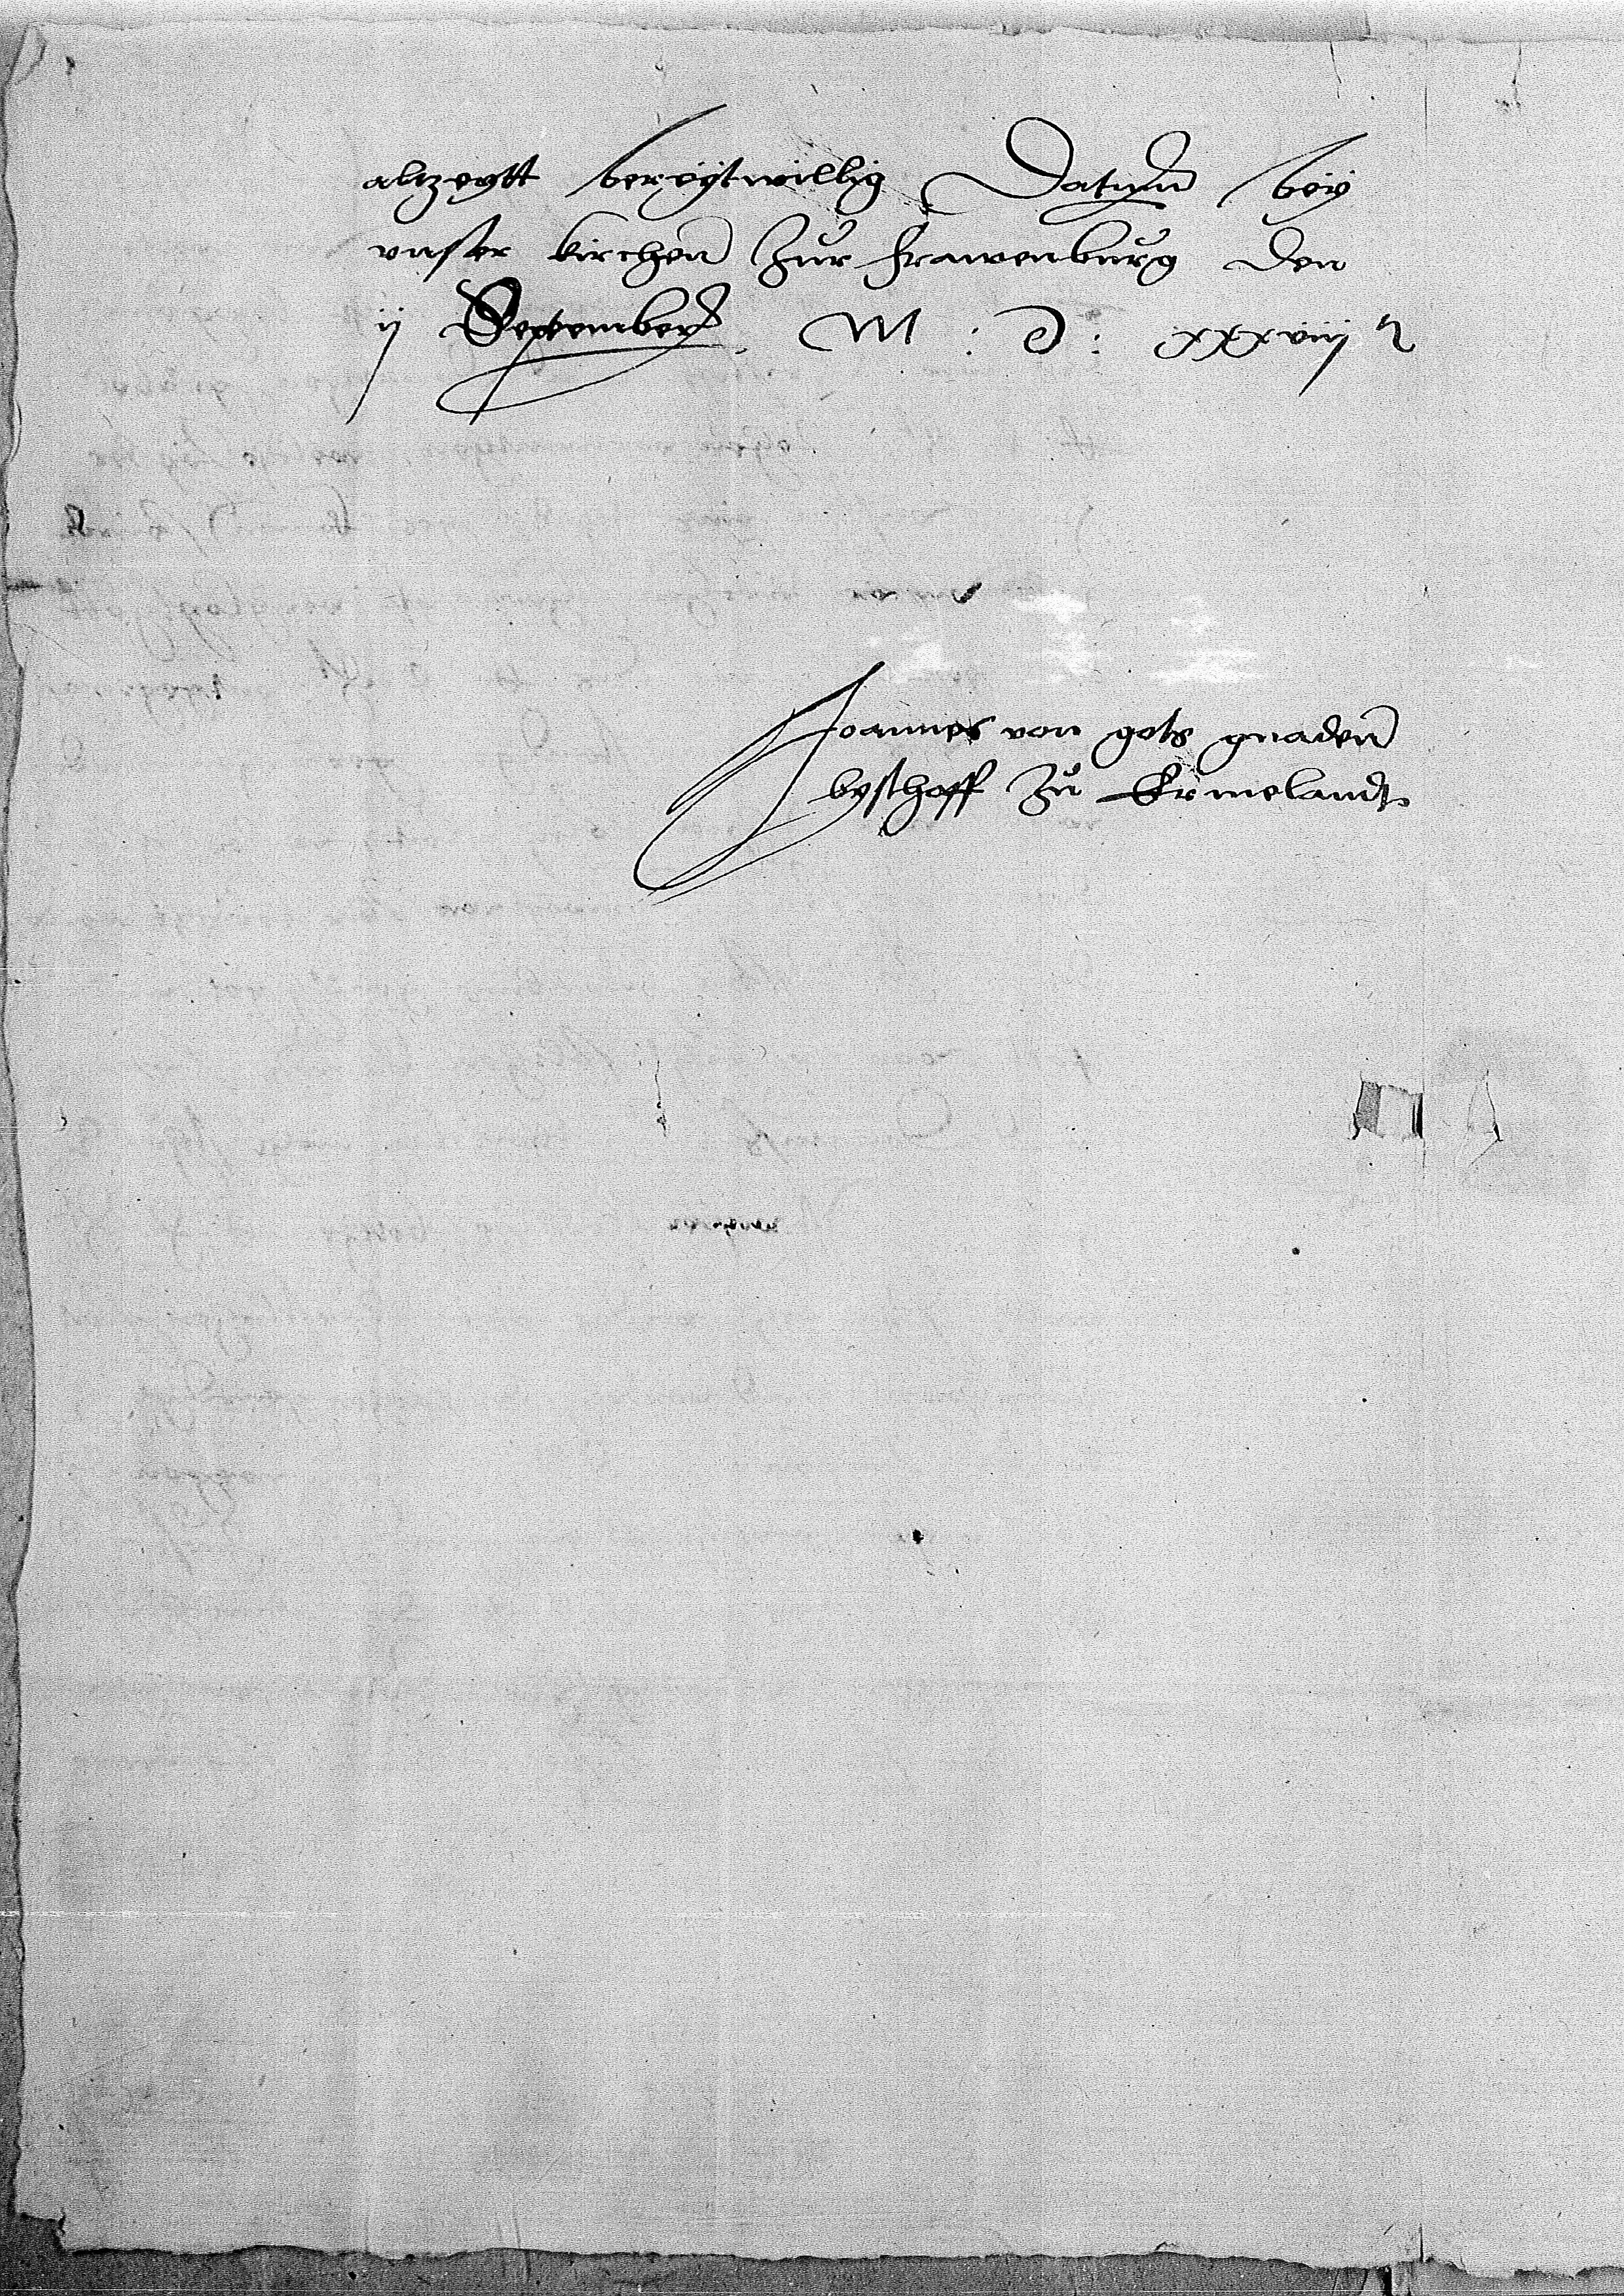 altzeytt bereÿtwillig Datum beÿ
vnser kirchenn zur Frawenburg den
ij Septembers M : D : xxxviij
Joannes von gots gnadenn
bysthoff zu Ermelandt